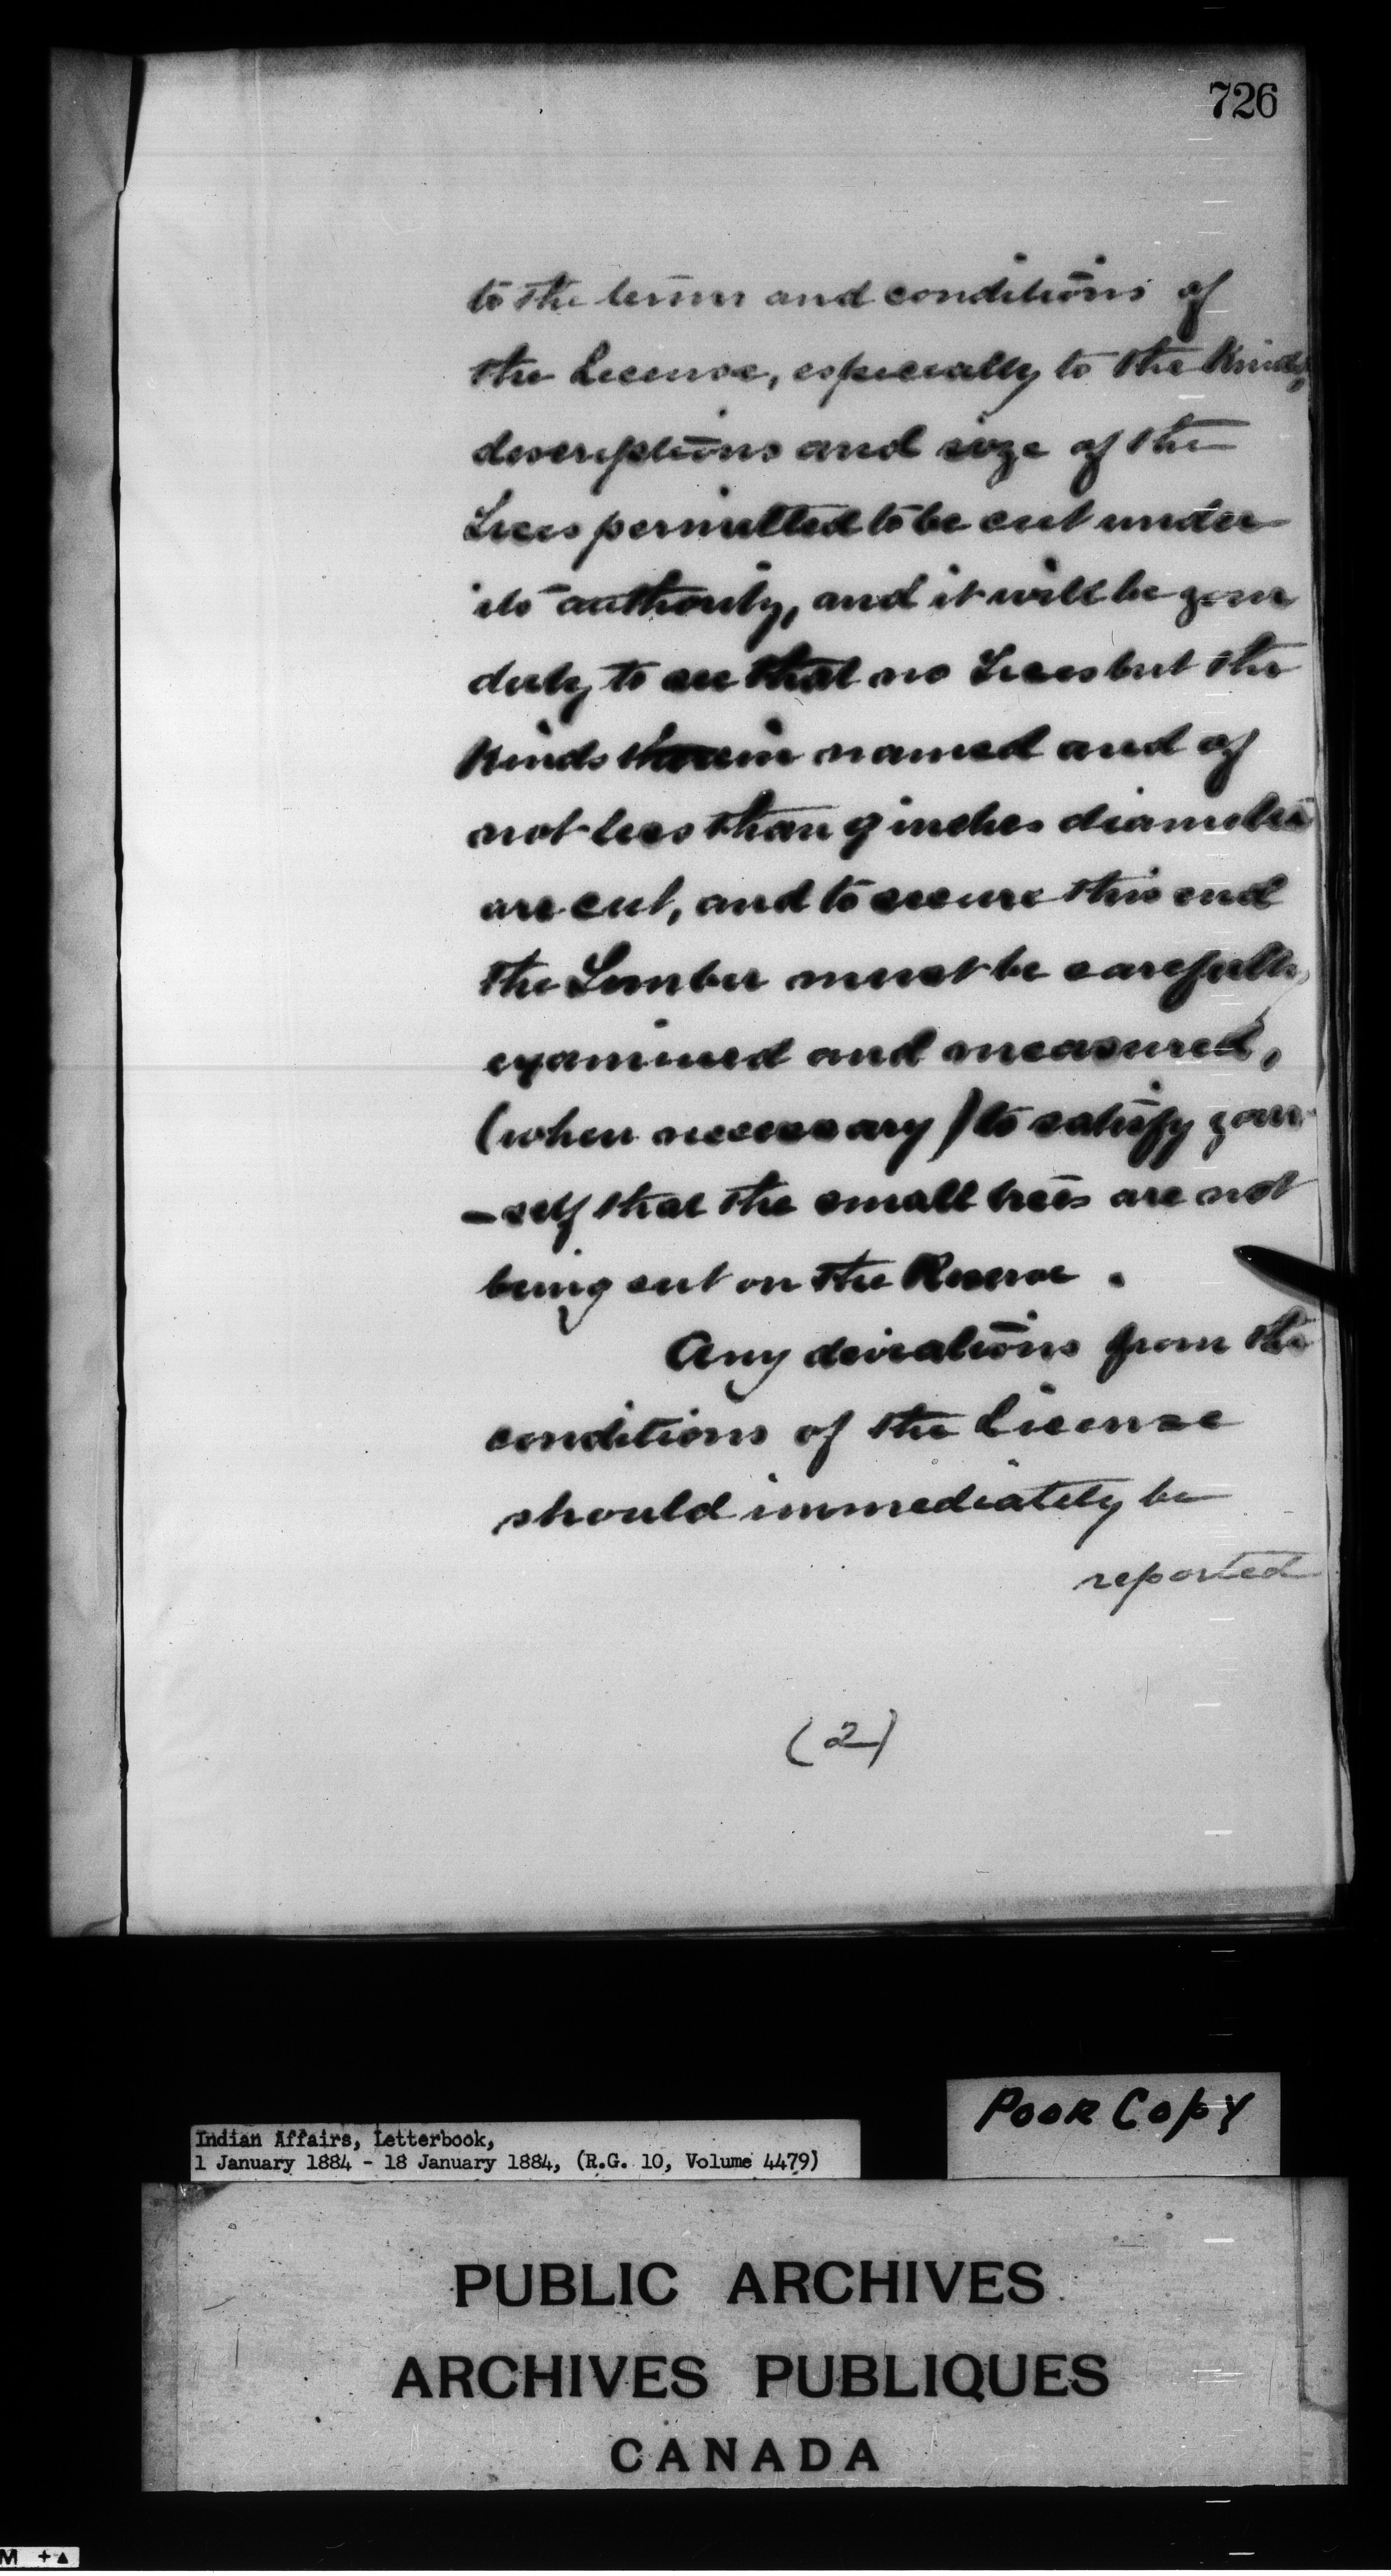 726
to the terms and conditions of
the License, especially to the Kinds,
descriptions and size of the
Trees permitted to be cut under
its authority, and it will be your
duty to see that no Trees but the
Kinds therein named and of
not less than 9 inches diameter
are cut, and to secure this end
the Timber must be carefully
examined and measured,
(when necessary) to satisfy your
-self that the small trees are not
being cut on the Reserve.
Any deviations from the
conditions of the License
should immediately be
reported
(2)
POOR COPY
Indian Affairs, Letterbook,
1 January 1884 - 18 January 1884, (R.G. 10, Volume 4479)
PUBLIC ARCHIVES
ARCHIVES PUBLIQUES
CANADA
M +▲